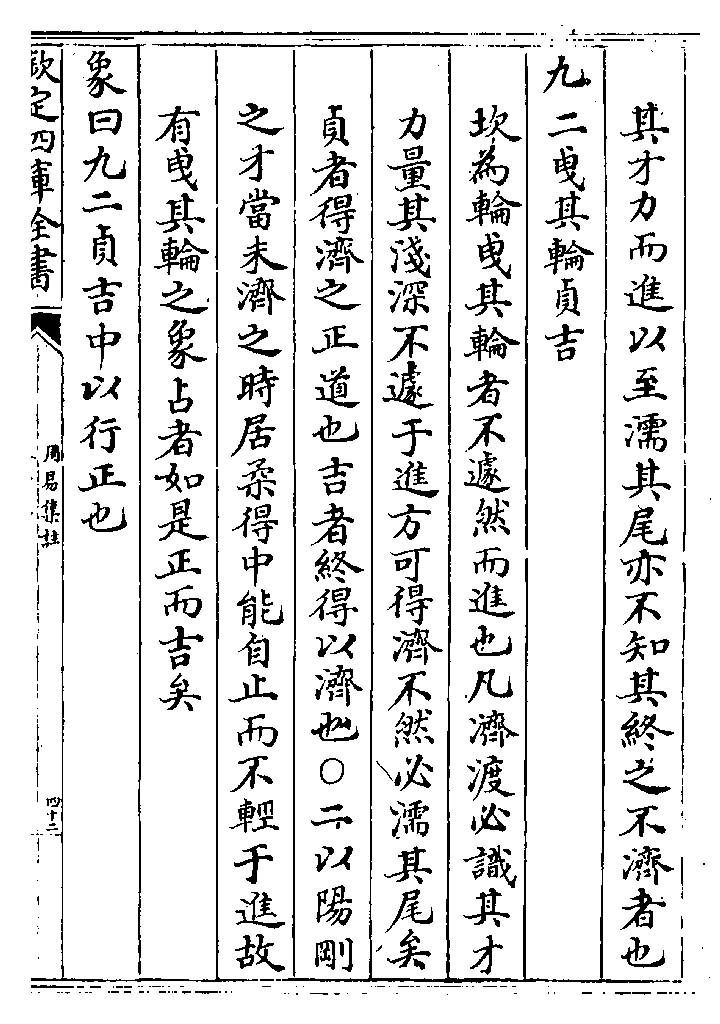 其才力而進以至濡其尾亦不知其終之不濟者也
九二曵其輪貞吉
坎為輪曵其輪者不遽然而進也凡濟渡必識其才
力量其淺深不遽于進方可得濟不然必濡其尾矣
貞者得濟之正道也吉者終得以濟也○二以陽剛
之才當未濟之時居柔得中能自止而不輕于進故
有曵其輪之象占者如是正而吉矣
象曰九二貞吉中以行正也
欽定四庫全書
周易集註
四十二